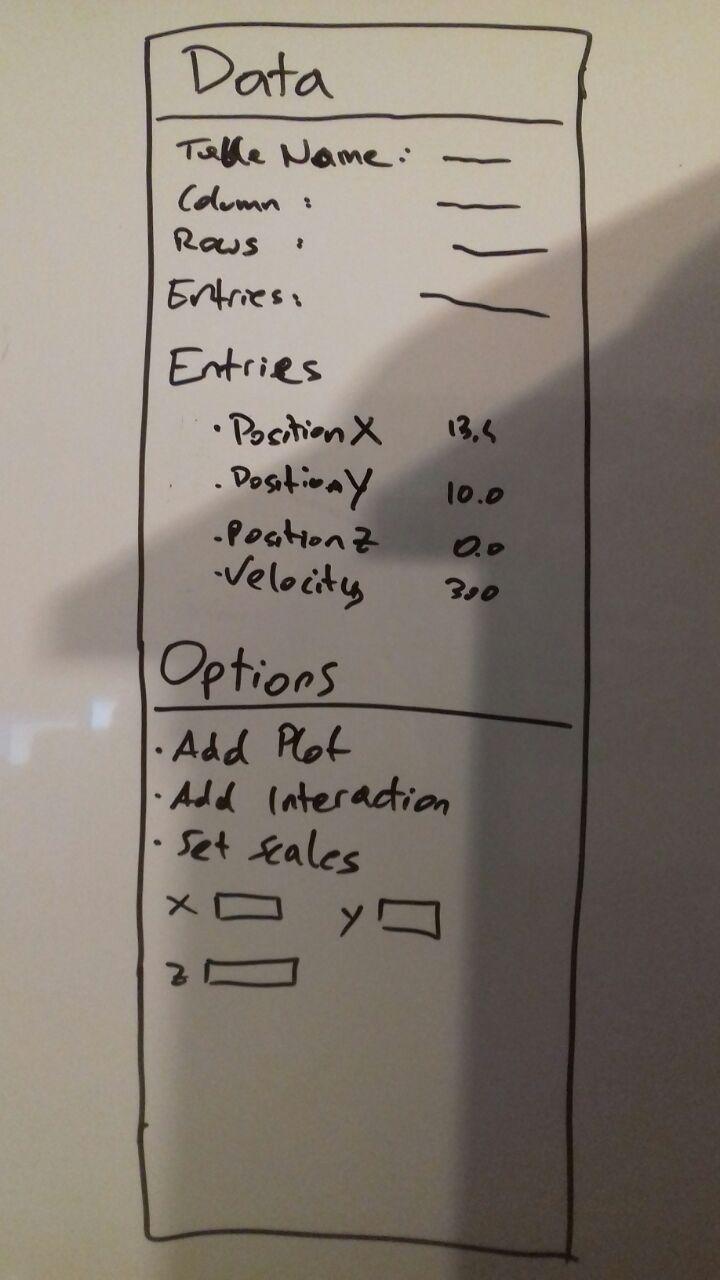 Data
Table Name:
Column :
Rows :
Entries:
Entries
· Position X
· Position Y 10.0
· Position Z 0.0
· Velocity 3.0
Options
· Add Plot
· Add Interaction
· Set Scales
X Y
Z